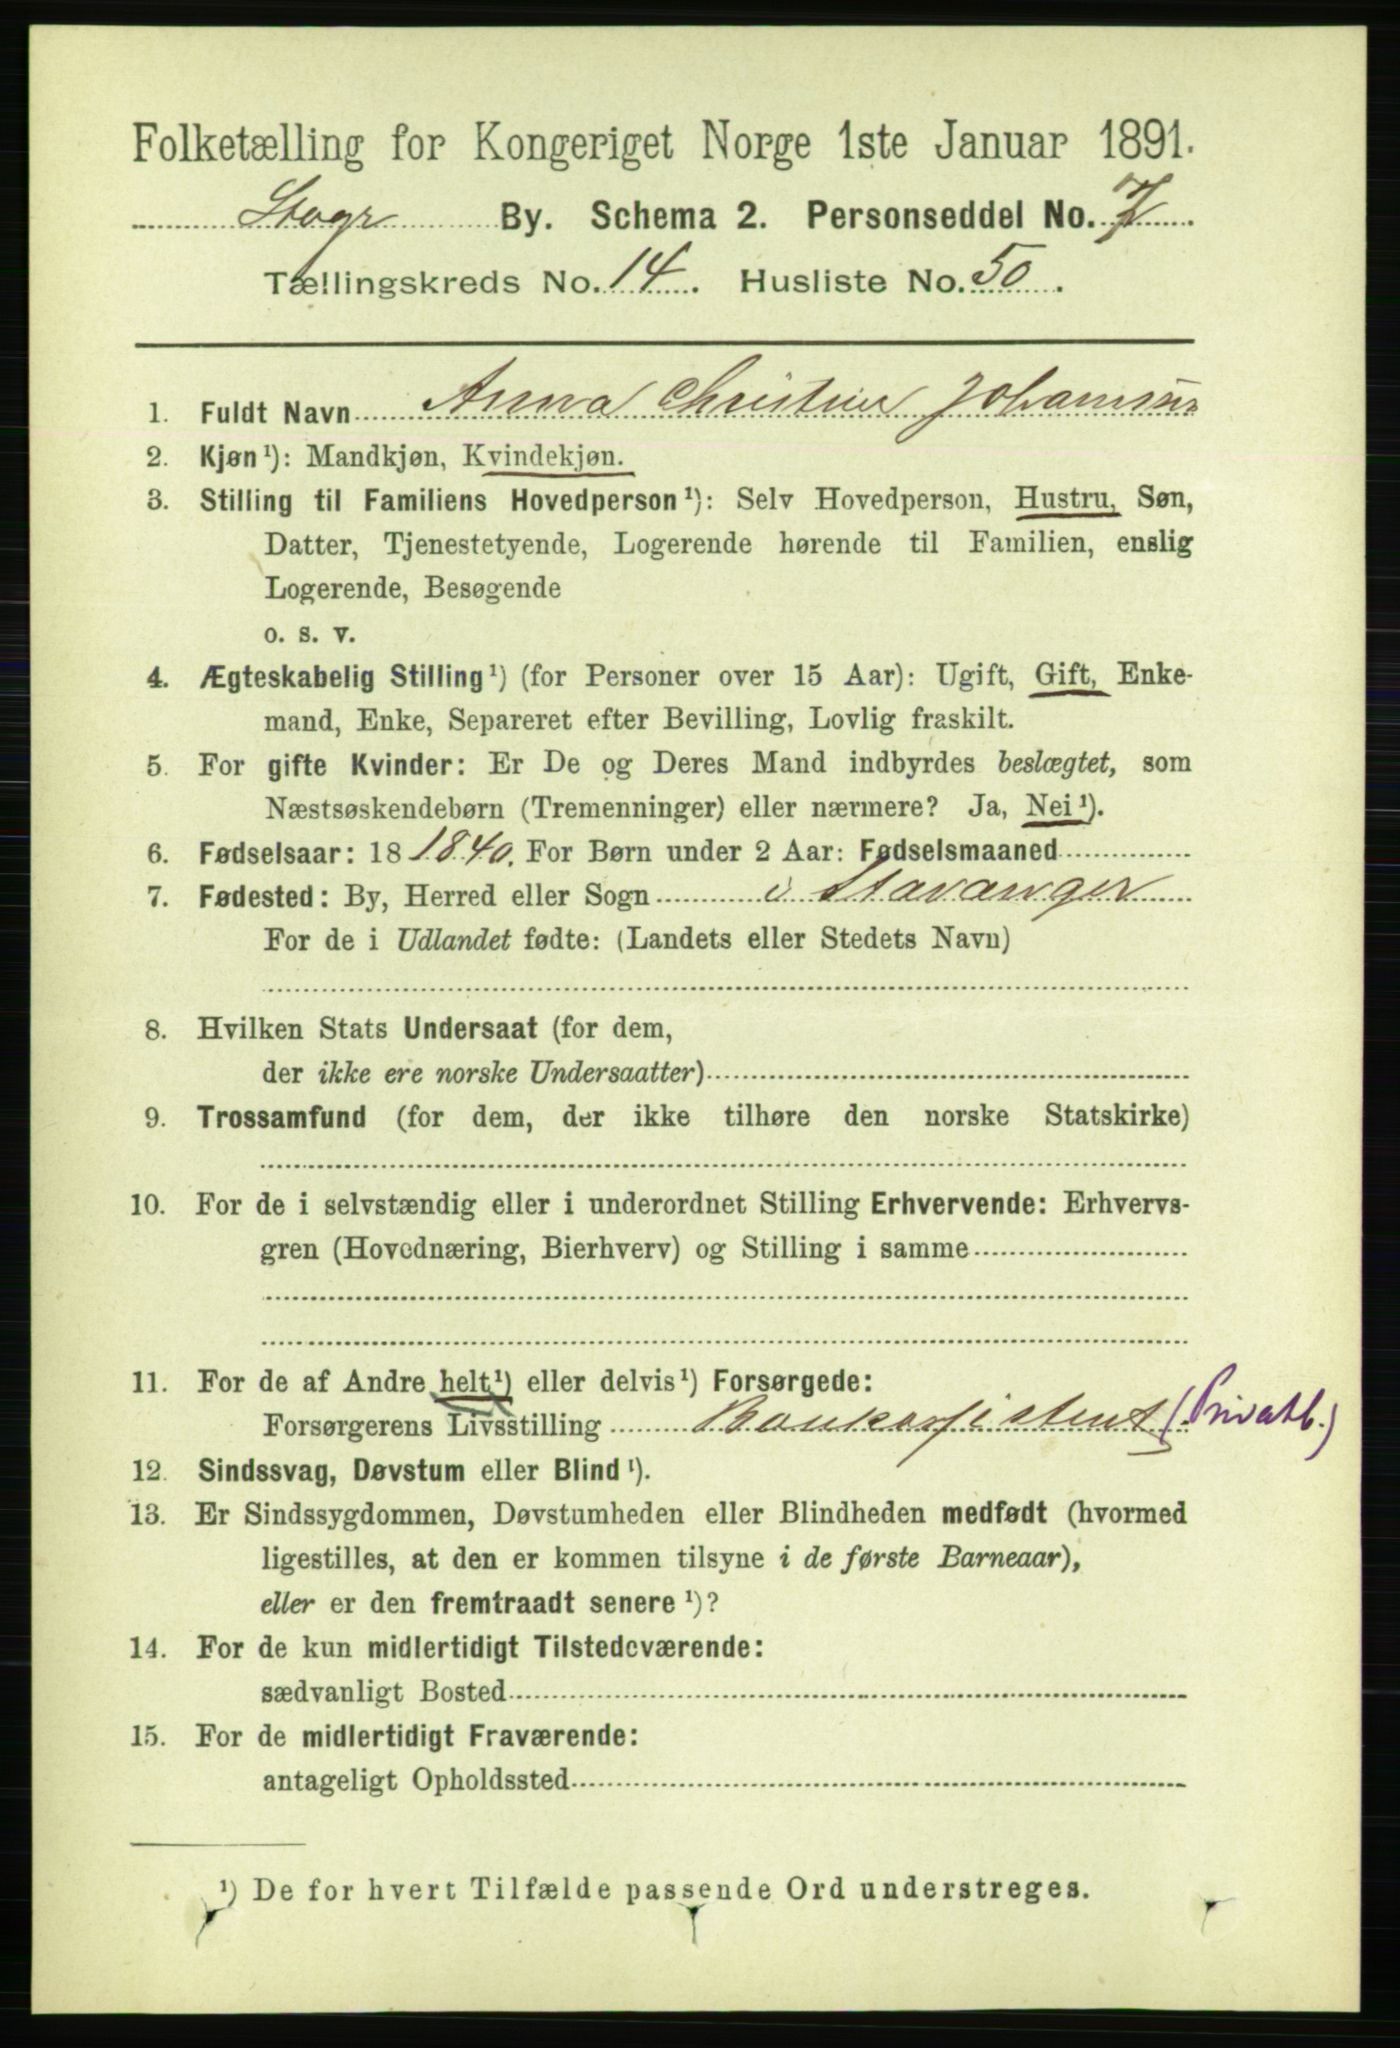 Folketælling for Kongeriget Norge 1ste Januar 1891.
Stvgr By. Schema 2. Personseddel No. 7
Tællingskreds No. 14. Husliste No. 50.
1. Fuldt Navn Anna Christine Johannsen
2. Kjøn¹): Mandkjøn, Kvindekjøn.
3. Stilling til Familiens Hovedperson¹): Selv Hovedperson, Hustru, Søn,
Datter, Tjenestetyende, Logerende hørende til Familien, enslig
Logerende, Besøgende
o. s. v.
4. Ægteskabelig Stilling¹) (for Personer over 15 Aar): Ugift, Gift, Enke-
mand, Enke, Separeret efter Bevilling, Lovlig fraskilt.
5. For gifte Kvinder: Er De og Deres Mand indbyrdes beslægtet, som
Næstsøskendebørn (Tremenninger) eller nærmere? Ja, Nei¹).
6. Fødselsaar: 18 1840. For Børn under 2 Aar: Fødselsmaaned
7. Fødested: By, Herred eller Sogn i Stavanger
For de i Udlandet fødte: (Landets eller Stedets Navn)
8. Hvilken Stats Undersaat (for dem,
der ikke ere norske Undersaatter)
9. Trossamfund (for dem, der ikke tilhøre den norske Statskirke)
10. For de i selvstændig eller i underordnet Stilling Erhvervende: Erhvervs-
gren (Hovednæring, Bierhverv) og Stilling i samme
11. For de af Andre helt¹) eller delvis¹) Forsørgede:
Forsørgerens Livsstilling Bankassistent (Privatb.)
12. Sindssvag, Døvstum eller Blind¹).
13. Er Sindssygdommen, Døvstumheden eller Blindheden medfødt (hvormed
ligestilles, at den er kommen tilsyne i de første Barneaar),
eller er den fremtraadt senere¹)?
14. For de kun midlertidigt Tilstedeværende:
sædvanligt Bosted
15. For de midlertidigt Fraværende:
antageligt Opholdssted
¹) De for hvert Tilfælde passende Ord understreges.